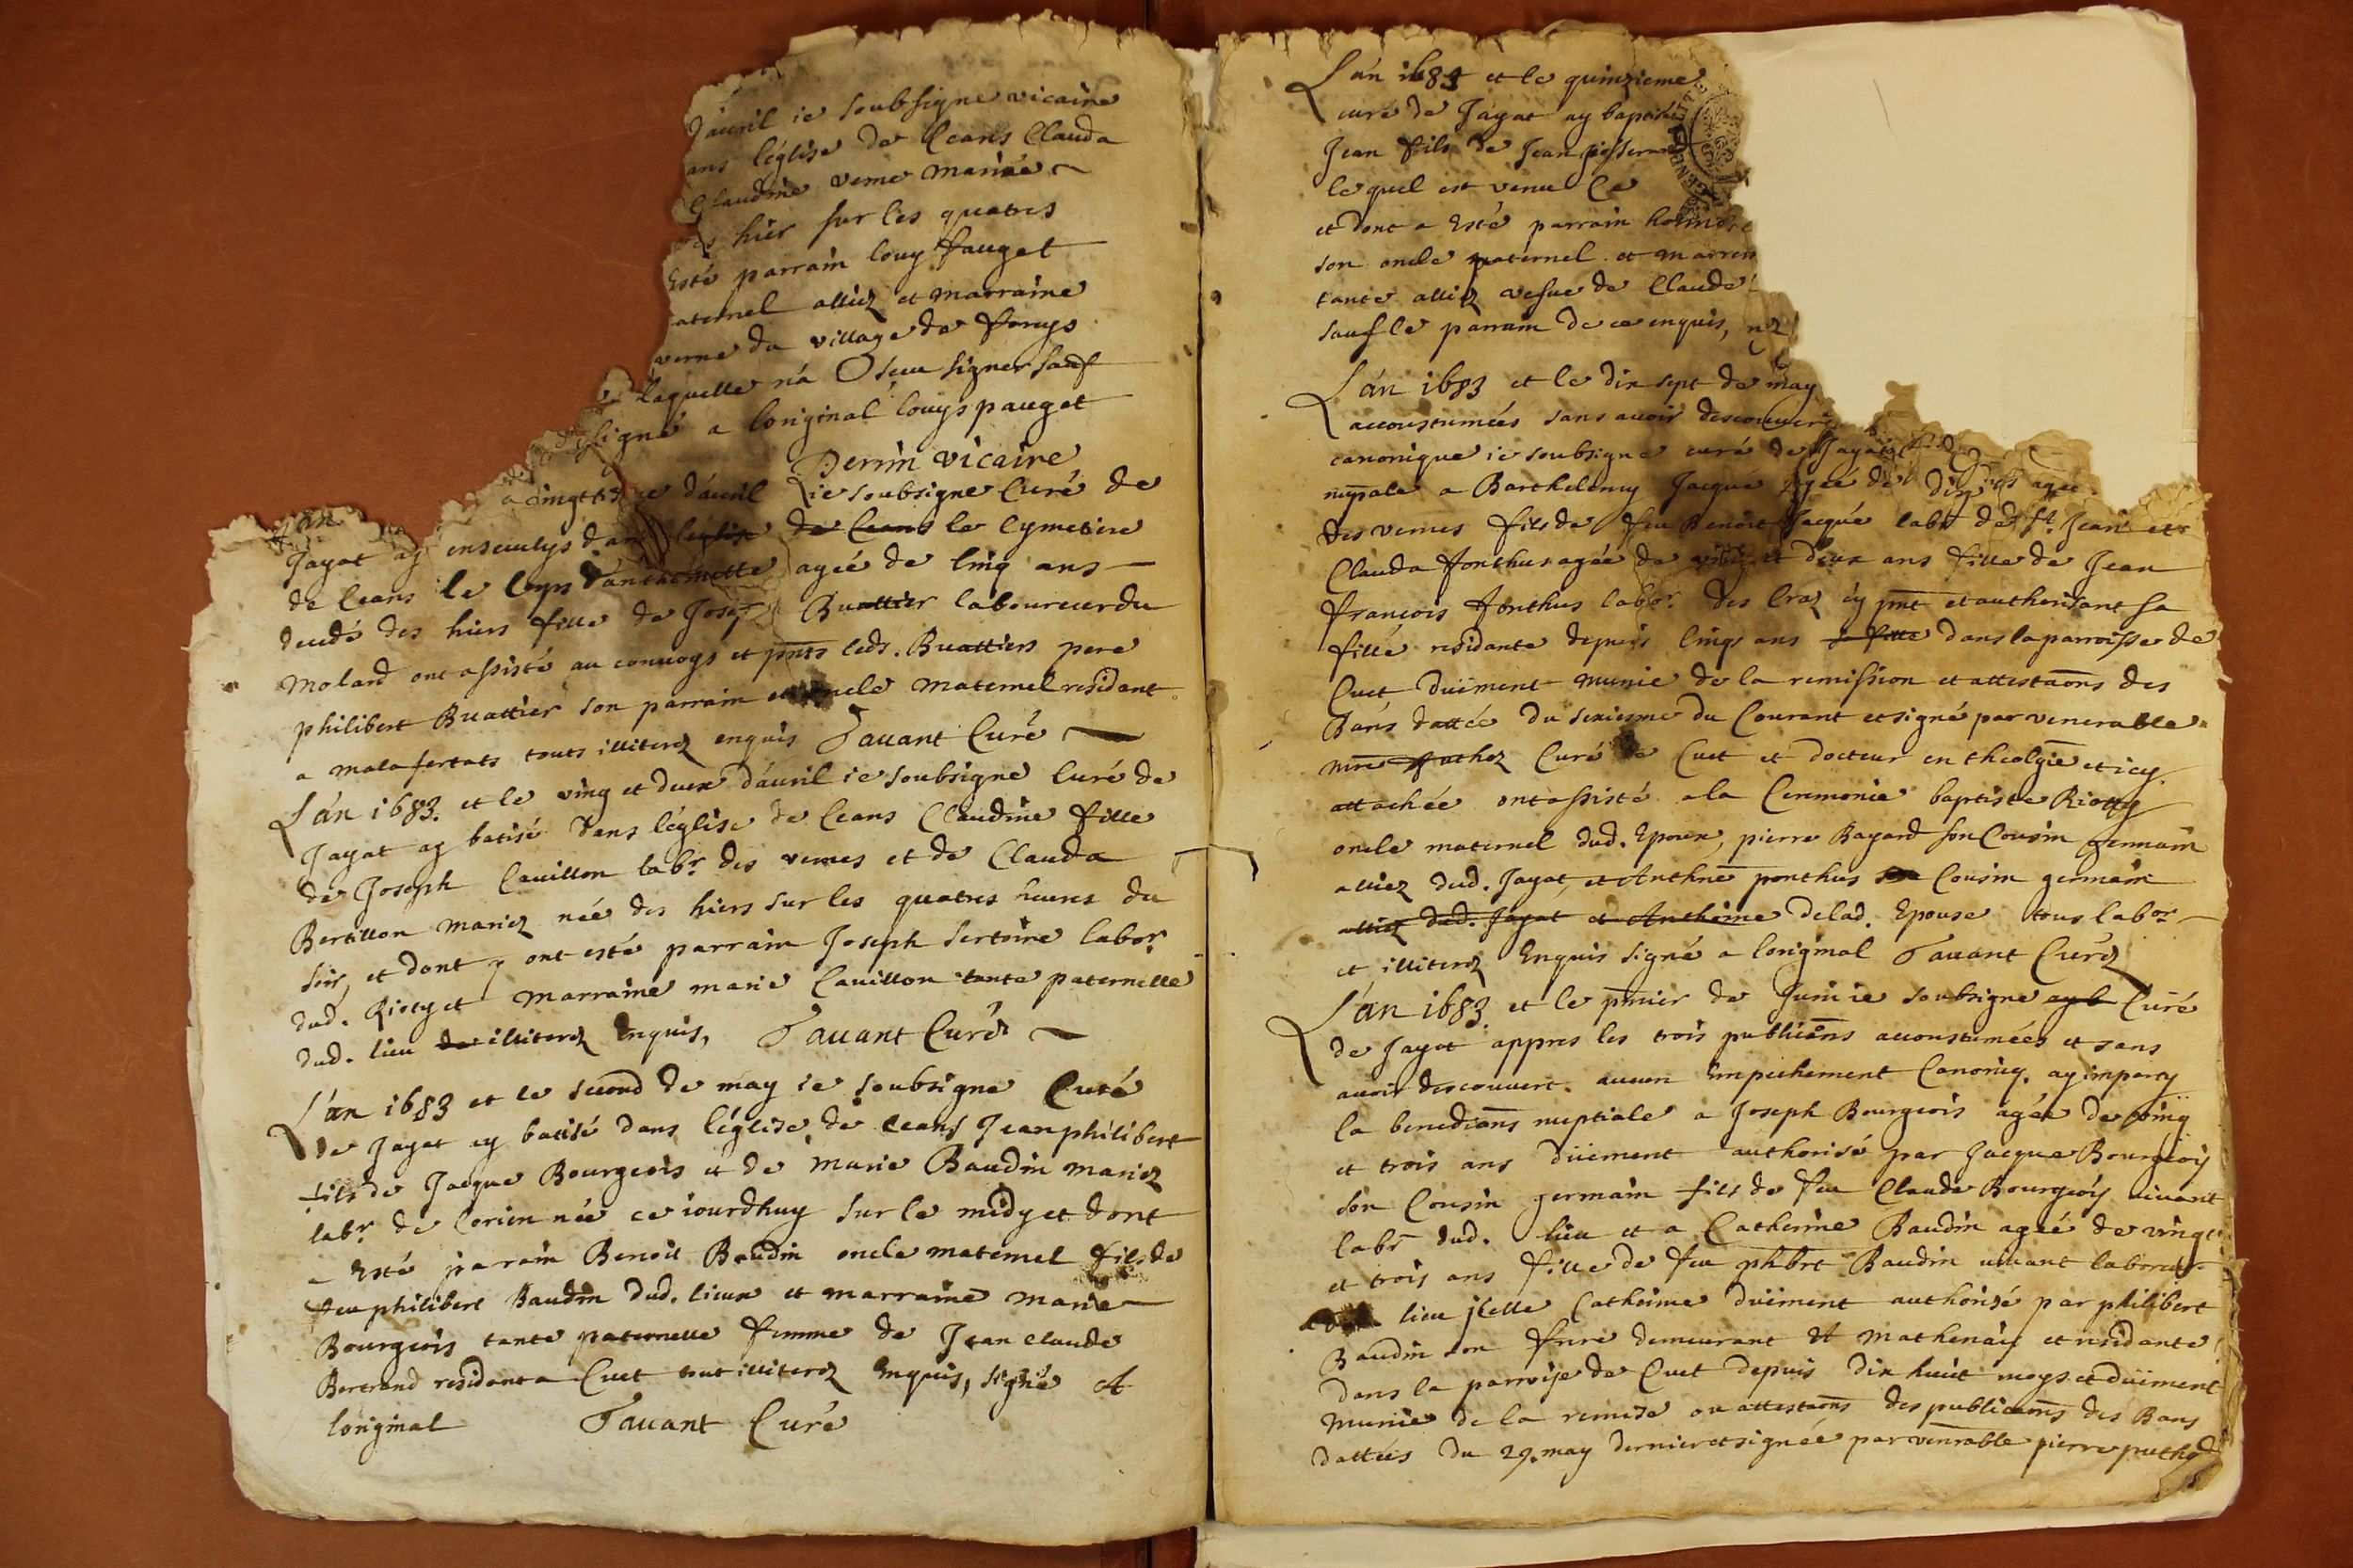 d'auril ie soubsigne vicaire
ans l'église de Ceans Clauda
Claudine verne mariée
hier sur les quatres
Esté parrain louy pauget
aternel alliez et marraine
verne du village de
laquelle n'a sceu signer sauf
signé a loriginal louys pauget
Perrin vicaire
L'an d'auril ie soubsigne Curé de
Jayat ay enseuelys dans l'eglise de Ceans le Cymetiere
de Ceans le Corps d'anthemette agée de Cinq ans
decedé des hiers fille de Josep Buattier laboureur du
Moland ont assisté au conuoys et pnts leds. Buattiers pere
philibert Buattier son parrain et oncle maternel residant
a malafertats touts illiterez enquis Tauant Curé
L'an 1683. et le ving et deux d'auril ie soubsigne Curé de
Jayat ay batisé dans l'église de Ceans Claudine fille
de Joseph Cauillon labr. des vernes et de Clauda
Bertillon mariez née des hiers sur les quatres heures du
soir, et dont y ont esté parrain Joseph sertoire labor.
dud. Riotyet marraine marie Cauillon tante paternelle
dud. lieu illiterez Enquis, Tauant Curé
L'an 1683 et le second de may ie soubsigne Curé
de Jayat ay batisé dans l'église de ceans Jean philibert
fils de Jacque Bourgeois et de marie Baudin mariez
labr. de Corien née ce iourdhuy sur le midy et dont
a Esté parrain Benoit Baudin oncle maternel fils de
feu philibert Baudin dud. lieux et marraine marie
Bourgeois tante paternelle femme de Jean claude
Bertrand residant a Cuet tout illiterez Enquis, signé A
loriginal Tauant Curé
L'an 1683 et le quinzieme
curé de Jayat ay baptisé
Jean fils de Jean
lequel est venu Ce
et dont a Esté parrain
son oncle paternel et marrein
tante alliez vesue de Claude
sauf le parrain de ce enquis,
L'an 1683 et le dix sept de may
accoustumées sans auoir descouuert
canonique ie soubsigne curé de Jayat
nupale a Barthelemy Jacqué agée de
des vernes fils de feu Benoit Jacqué labr de st. Jean et
Clauda Ponthus agée de vingt et deux ans fille de Jean
françois Ponthus labor. des Craz cy pnt et authorisant sa
fille residante depuis Cinqs ans a fille dans la parroisse de
Cuet düiment munie de la remission et attestaons des
Bans dattée du seziesme du Courant et signé par venerable
mre puthoz Curé de Cuet et docteur en theologie et icy
attachée ont assisté a la Ceremonie baptiste Riotty
oncle maternel dud. Epoux, pierre Bayard son Cousin germain
alliez dud. Jayat, et Anthne ponthus Cousin germain
alliez dud. Jayat et Antheine delad. Epouse tous labor.
et illiterez Enquis signé a loriginal Tauant Curé
L'an 1683. et le pmier de Juin ie soubsigne ay b Curé
de Jayat appres les trois publicaons accoustumées et sans
auoir descouuert aucun Empechement Canoniq. ay imparty
la benedictions nuptiale a Joseph Bourgeois agée de ving
et trois ans düiment authorisé par Jacque Bourgeois
son Cousin germain fils de feu Claude Bourgeois viuant
labr dud. lieu et a Catherine Baudin agée de vingt
et trois ans fille de feu phbrt Baudin viuant laboreur
lieu jcelle Catherine düiment authorisé par philibert
Baudin son frere demeurant A mathenay et residante
dans la parroisse de Cuet depuis dix huict moys et düiment
munie de la remise ou attestaons des publicaons des Bans
dattées du 29. may dernier et signée par venrable pierre puthod